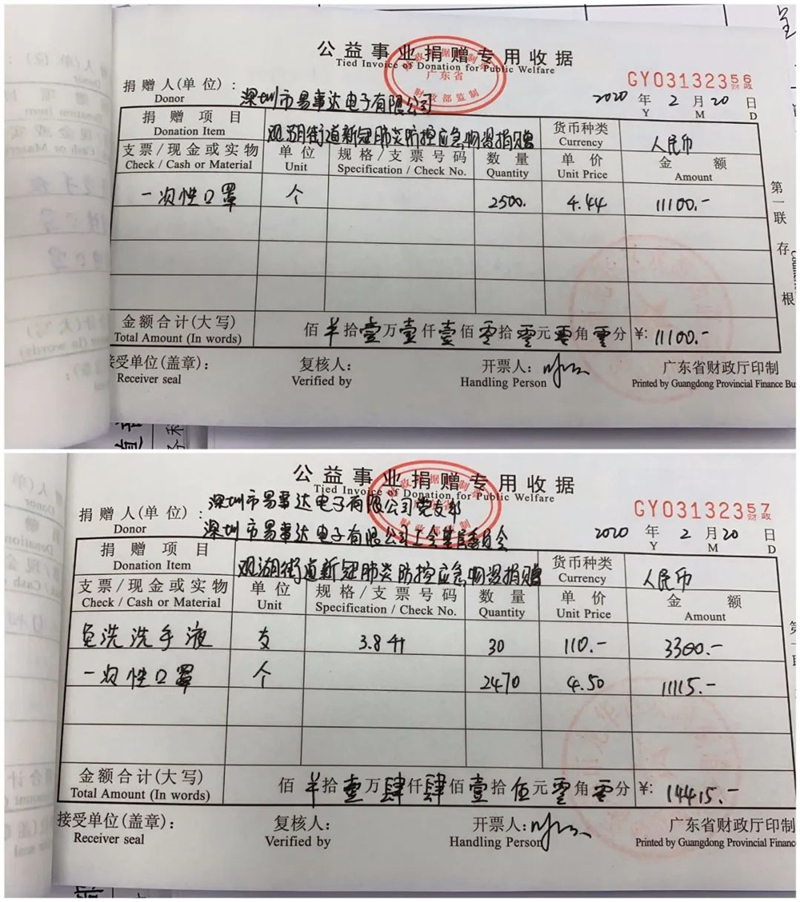 公益事业捐赠专用收据
Tied Invoice of Donation for Public Welfare
广东省
财政部监制
GY03132356
捐赠人(单位)：深圳市易事达电子有限公司
Donor
2020 年 2 月 20 日
Y M D
捐赠项目 观湖街道新冠肺炎防控应急物资捐赠 货币种类 人民币
Donation Item Currency
支票/现金或实物 单位 规格/支票号码 数量 单价 金额
Check / Cash or Material Unit Specification / Check No. Quantity Unit Price Amount
一次性口罩 个 2500. 4.44 11100.-
第一联 存根
金额合计(大写) 佰 拾壹万壹仟壹佰零拾零元零角零分 ¥: 11100.-
Total Amount (In words)
接受单位(盖章)： 复核人： 开票人： 广东省财政厅印制
Receiver seal Verified by Handling Person Printed by Guangdong Provincial Finance Bu
公益事业捐赠专用收据
Tied Invoice of Donation for Public Welfare
财政部监制
GY03132357
深圳市易事达电子有限公司党支部
捐赠人(单位)：深圳市易事达电子有限公司工会基层委员会
Donor
2020 年 2 月 20 日
Y M D
捐赠项目 观湖街道新冠肺炎防控应急物资捐赠 货币种类 人民币
Donation Item Currency
支票/现金或实物 单位 规格/支票号码 数量 单价 金额
Check / Cash or Material Unit Specification / Check No. Quantity Unit Price Amount
免洗洗手液 支 3.8升 30 110.- 3300.-
一次性口罩 个 2470 4.50 11115.-
金额合计(大写) 佰 拾壹万肆仟肆佰壹拾伍元零角零分 ¥: 14415.-
Total Amount (In words)
接受单位(盖章)： 复核人： 开票人： 广东省财政厅印制
Receiver seal Verified by Handling Person Printed by Guangdong Provincial Finance